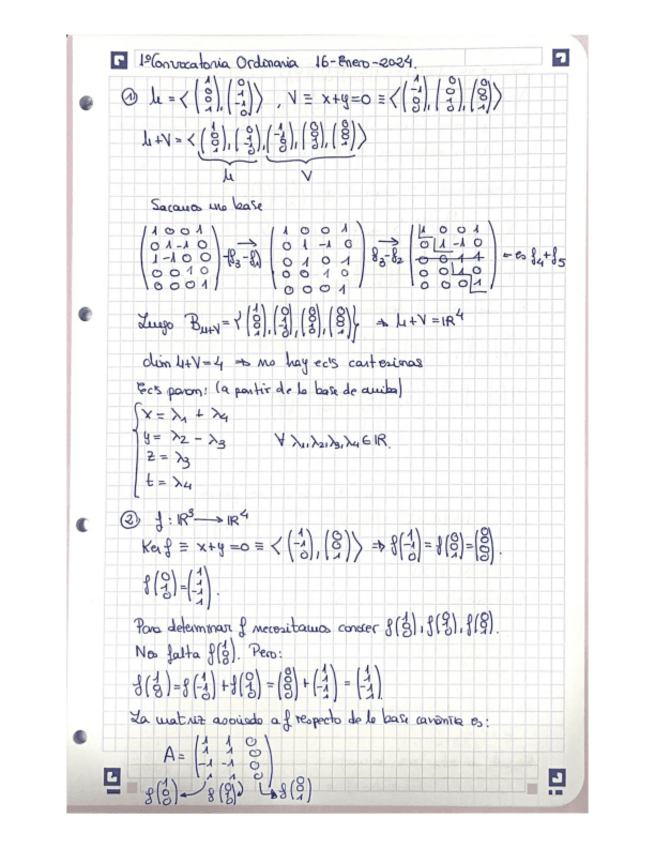 1ªConvocatoria Ordinaria 16-Enero-2024.
① U = <(1 0 0 1), (0 1 -1 0)>, V ≡ x+y=0 ≡ <(1 -1 0 0), (0 0 1 0), (0 0 0 1)>
U+V = <(1 0 0 1), (0 1 -1 0), (1 -1 0 0), (0 0 1 0), (0 0 0 1)>
U V
Sacamos una base
(1 0 0 1 / 0 1 -1 0 / 1 -1 0 0 / 0 0 1 0 / 0 0 0 1) → f3-f1 (1 0 0 1 / 0 1 -1 0 / 0 1 0 1 / 0 0 1 0 / 0 0 0 1) → f3-f2 (1 0 0 1 / 0 1 -1 0 / 0 0 1 1 / 0 0 1 0 / 0 0 0 1) → es f4+f5
Luego B_U+V = {(1 0 0 1), (0 1 -1 0), (0 0 1 0), (0 0 0 1)} ⇒ U+V = ℝ⁴
dim U+V=4 ⇒ no hay ec's cartesianas
Ec's param: (a partir de la base de arriba)
x = λ1 + λ4
y = λ2 - λ3 ∀ λ1,λ2,λ3,λ4 ∈ ℝ.
z = λ3
t = λ4
② f: ℝ³ → ℝ⁴
Ker f ≡ x+y=0 ≡ <(1 -1 0), (0 0 1)> ⇒ f(1 -1 0) = f(0 0 1) = (0 0 0 0).
f(0 1 0) = (1 1 -1 1).
Para determinar f necesitamos conocer f(1 0 0), f(0 1 0), f(0 0 1).
Nos falta f(1 0 0). Pero:
f(1 0 0) = f(1 -1 0) + f(0 1 0) = (0 0 0 0) + (1 1 -1 1) = (1 1 -1 1)
La matriz asociada a f respecto de la base canónica es:
A = (1 1 0 / 1 1 0 / -1 -1 0 / 1 1 0)
f(1 0 0) f(0 1 0) f(0 0 1)